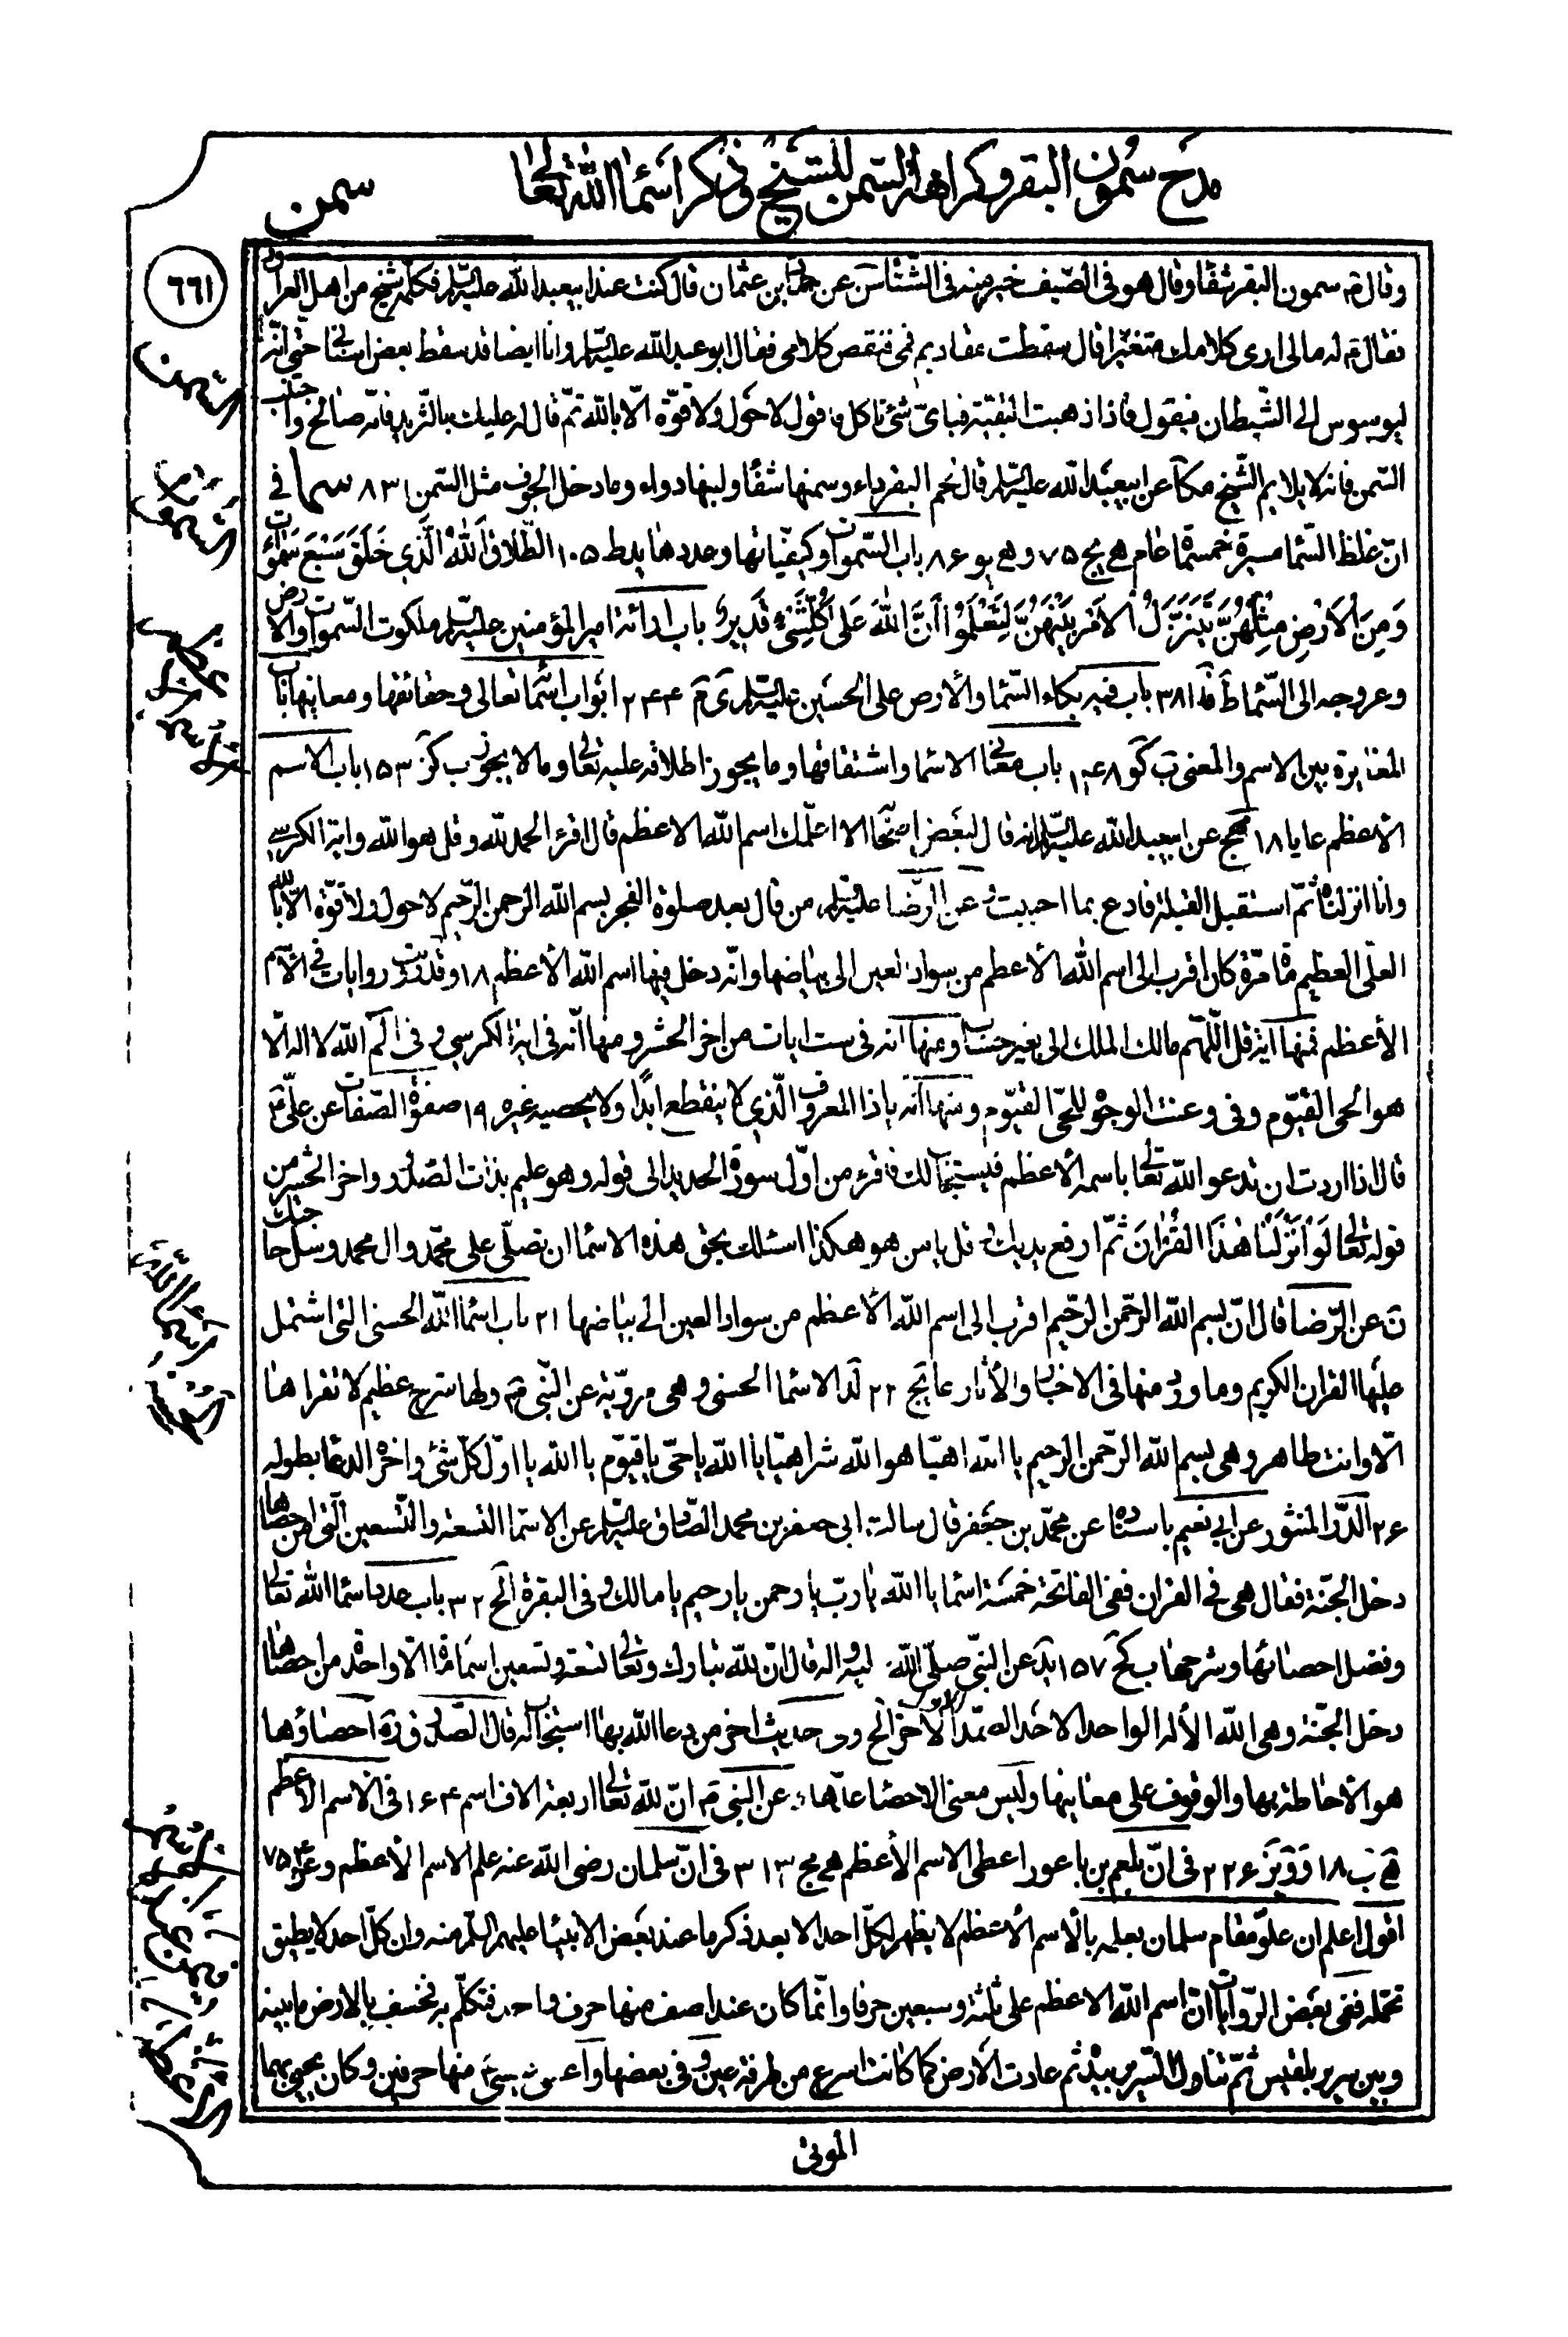 مدح سمون البقر وكراهة السمن للشيخ وذكر اسماء الله تعالى
سمن
٦٦١
وقال ع سمون البقر شفاء وقال هو في الصيف خير منه في الشتاء عن حماد بن عثمان قال كنت عند ابيعبد الله عليه السلم فكلمه شيخ من اهل العراق
فقال ع له مالى ارى كلامك متغيرا قال سقطت مقاديم فمى فنقص كلامى فقال ابو عبد الله عليه السلم وانا ايضا قد سقط بعض اسناني حتى انه
ليوسوس الى الشيطان فيقول فاذا ذهبت البقية فباى شئ تاكل فاقول لا حول ولا قوة الا بالله ثم قال له عليك بالثريد فانه صالح واجتنب
السمن فانه لا يلايم الشيخ مكا عن ابيعبد الله عليه السلم قال لحم البقر داء وسمنها شفاء ولبنها دواء وما دخل الجوف مثل السمن ٨٣١ سما في
ان غلظ السماء مسيرة خمسمائة عام هى مج ٧٥ وهى يو ٨۶ باب السموات وكيفياتها وعددها يد لط ١٠۵ الطلاق اَللهُ الَّذي خَلَقَ سَبْعَ سَمٰوٰاتٍ
وَمِنَ الْاَرْضِ مِثْلَهُنَّ يَتَنَزَّلُ الْاَمْرُ بَيْنَهُنَّ لِتَعْلَمُوا اَنَّ اللهَ عَلىٰ كُلِّشَئٍ قَديرٌ باب ارائة امير المؤمنين عليه السلم ملكوت السموات والارض
وعروجه الى السماء ط فا ٣٨١ باب فيه بكاء السماء والارض على الحسين عليه السلم ى م ٢۴۴ ابواب اسمائه تعالى وحقائقها ومعانيها باب
المغايرة بين الاسم والمعنى ب كو ١۴٨ باب معاني الاسماء واشتقاقها وما يجوز اطلاقه عليه تعالى وما لا يجوز ب كز ١۵٣ باب الاسم
الأعظم عا يا ١٨ مهج عن ابيعبد الله عليه السلم انه قال لبعض اصحابه الا اعلمك اسم الله الاعظم قال اقرء الحمد لله وقل هو الله واية الكرسي
وانا انزلناه ثم استقبل القبلة فادع بما احببت عن الرضا عليه السلم من قال بعد صلوة الفجر بسم الله الرحمن الرحيم لا حول ولا قوة الا بالله
العلى العظيم مائة مرة كان اقرب الى اسم الله الأعظم من سواد العين الى بياضها وانه دخل فيها اسم الله الأعظم ١٨ وقد وردت روايات في الاسم
الأعظم فمنها اية قل اللهم مالك الملك الى بغير حساب ومنها انه في ست ايات من اخر الحشر ومنها انه في اية الكرسي وفى الم الله لا اله الا
هو الحى القيوم وفى وعنت الوجوه للحى القيوم ومنها انه يا ذا المعروف الذي لا ينقطع ابدا ولا يحصيه غيره ١٩ صفوة الصفات عن على ع
قال اذا اردت ان تدعو الله تعالى باسمه الأعظم فيستجاب لك فاقرء من اول سورة الحديد الى قوله وهو عليم بذات الصدور واخر الحشر من
قوله تعالى لَوْ اَنْزَلْنٰا هٰذَا الْقُرْاٰنَ ثم ارفع يديك وقل يا من هو هكذا اسئلك بحق هذه الاسماء ان تصلى على محمد وال محمد وسل حاجتك
ن عن الرضا قال ان بسم الله الرحمن الرحيم اقرب الى اسم الله الأعظم من سواد العين الى بياضها ٢١ باب اسماء الله الحسنى التى اشتمل
عليها القران الكريم وما ورد منها في الاخبار والأثار عا يج ٢٢ لد الاسماء الحسنى وهى مروية عن النبى ص ولها شرح عظيم لا تقراها
الا وانت طاهر وهى بسم الله الرحمن الرحيم يا الله اهيا هو الله شراهيا يا الله يا حى يا قيوم يا الله يا اول كل شئ واخره الدعا بطوله
٢۶ الدر المنثور عن ابي نعيم باسناده عن محمد بن جعفر قال سالت ابى جعفر بن محمد الصادق عليه السلم عن الاسماء التسعة والتسعين التى من احصاها
دخل الجنة فقال هى في القران ففى الفاتحة خمسة اسماء يا الله يا رب يا رحمن يا رحيم يا مالك وفى البقرة الخ ٣٢ باب عدد اسماء الله تعالى
وفضل احصائها وشرحها ب كح ١۵٧ يد عن النبى صلى الله عليه واله قال ان لله تبارك وتعالى تسعة وتسعين اسما مائة الا واحدة من احصاها
دخل الجنة وهى الله الأله الواحد الاحد الصمد الاول الاخر الخ وفى حديث اخر من دعا الله بها استجاب له قال الصدوق ره احصاؤها
هو الأحاطة بها والوقوف على معانيها وليس معنى الاحصاء عدها عن النبى ص ان لله تعالى اربعة الاف اسم ١۶۴ في الاسم الاعظم
١٨ ٢٢۶ في ان بلعم بن باعورا اعطى الاسم الأعظم هى مج ٣١٣ في ان سلمان رضى الله عنه علم الاسم الأعظم ٧۵۴
اقول اعلم ان علو مقام سلمان بعلمه بالاسم الأعظم لا يظهر لكل احد الا بعد ذكر ما عند بعض الانبياء عليهم السلم منه وان كل احد لا يطيق
تحمله ففى بعض الروايات ان اسم الله الاعظم على ثلثة وسبعين حرفا وانما كان عند اصف منها حرف واحد فتكلم به فخسف بالارض ما بينه
وبين سرير بلقيس ثم تناول السرير بيده ثم عادت الأرض كما كانت اسرع من طرفة عين وفى بعضها واعطى عيسى ع منها حرفين وكان يحيى بهما
الموتى